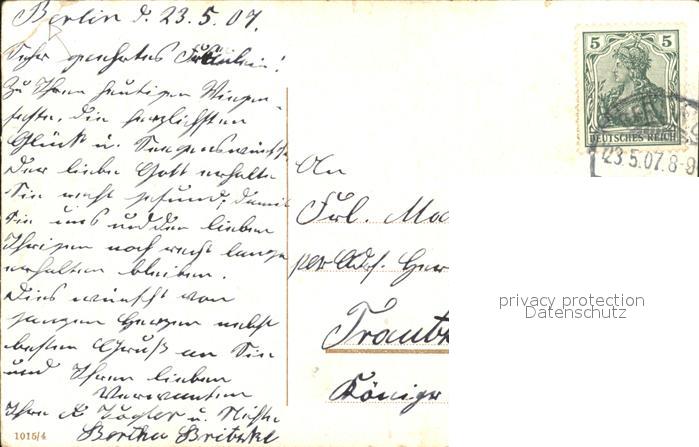 Berlin d. 23.5.07.
Sehr geehrtes Fräulein!
Zu Ihrem heutigen Wiegen-
feste, die herzlichsten
Glück u. Segenswünsche
Der liebe Gott erhalte
Sie recht gesund, damit
Sie uns und den lieben
Ihrigen noch recht lange
erhalten bleiben.
Dies wünscht von
ganzem Herzen nebst
besten Gruß an Sie
und Ihren lieben
Verwandten
Ihre u. Nichte
Bertha
1015/4
5 5
DEUTSCHES REICH
23.5.07.8-9
An
Frl.
per Adr. Her
privacy protection
Datenschutz